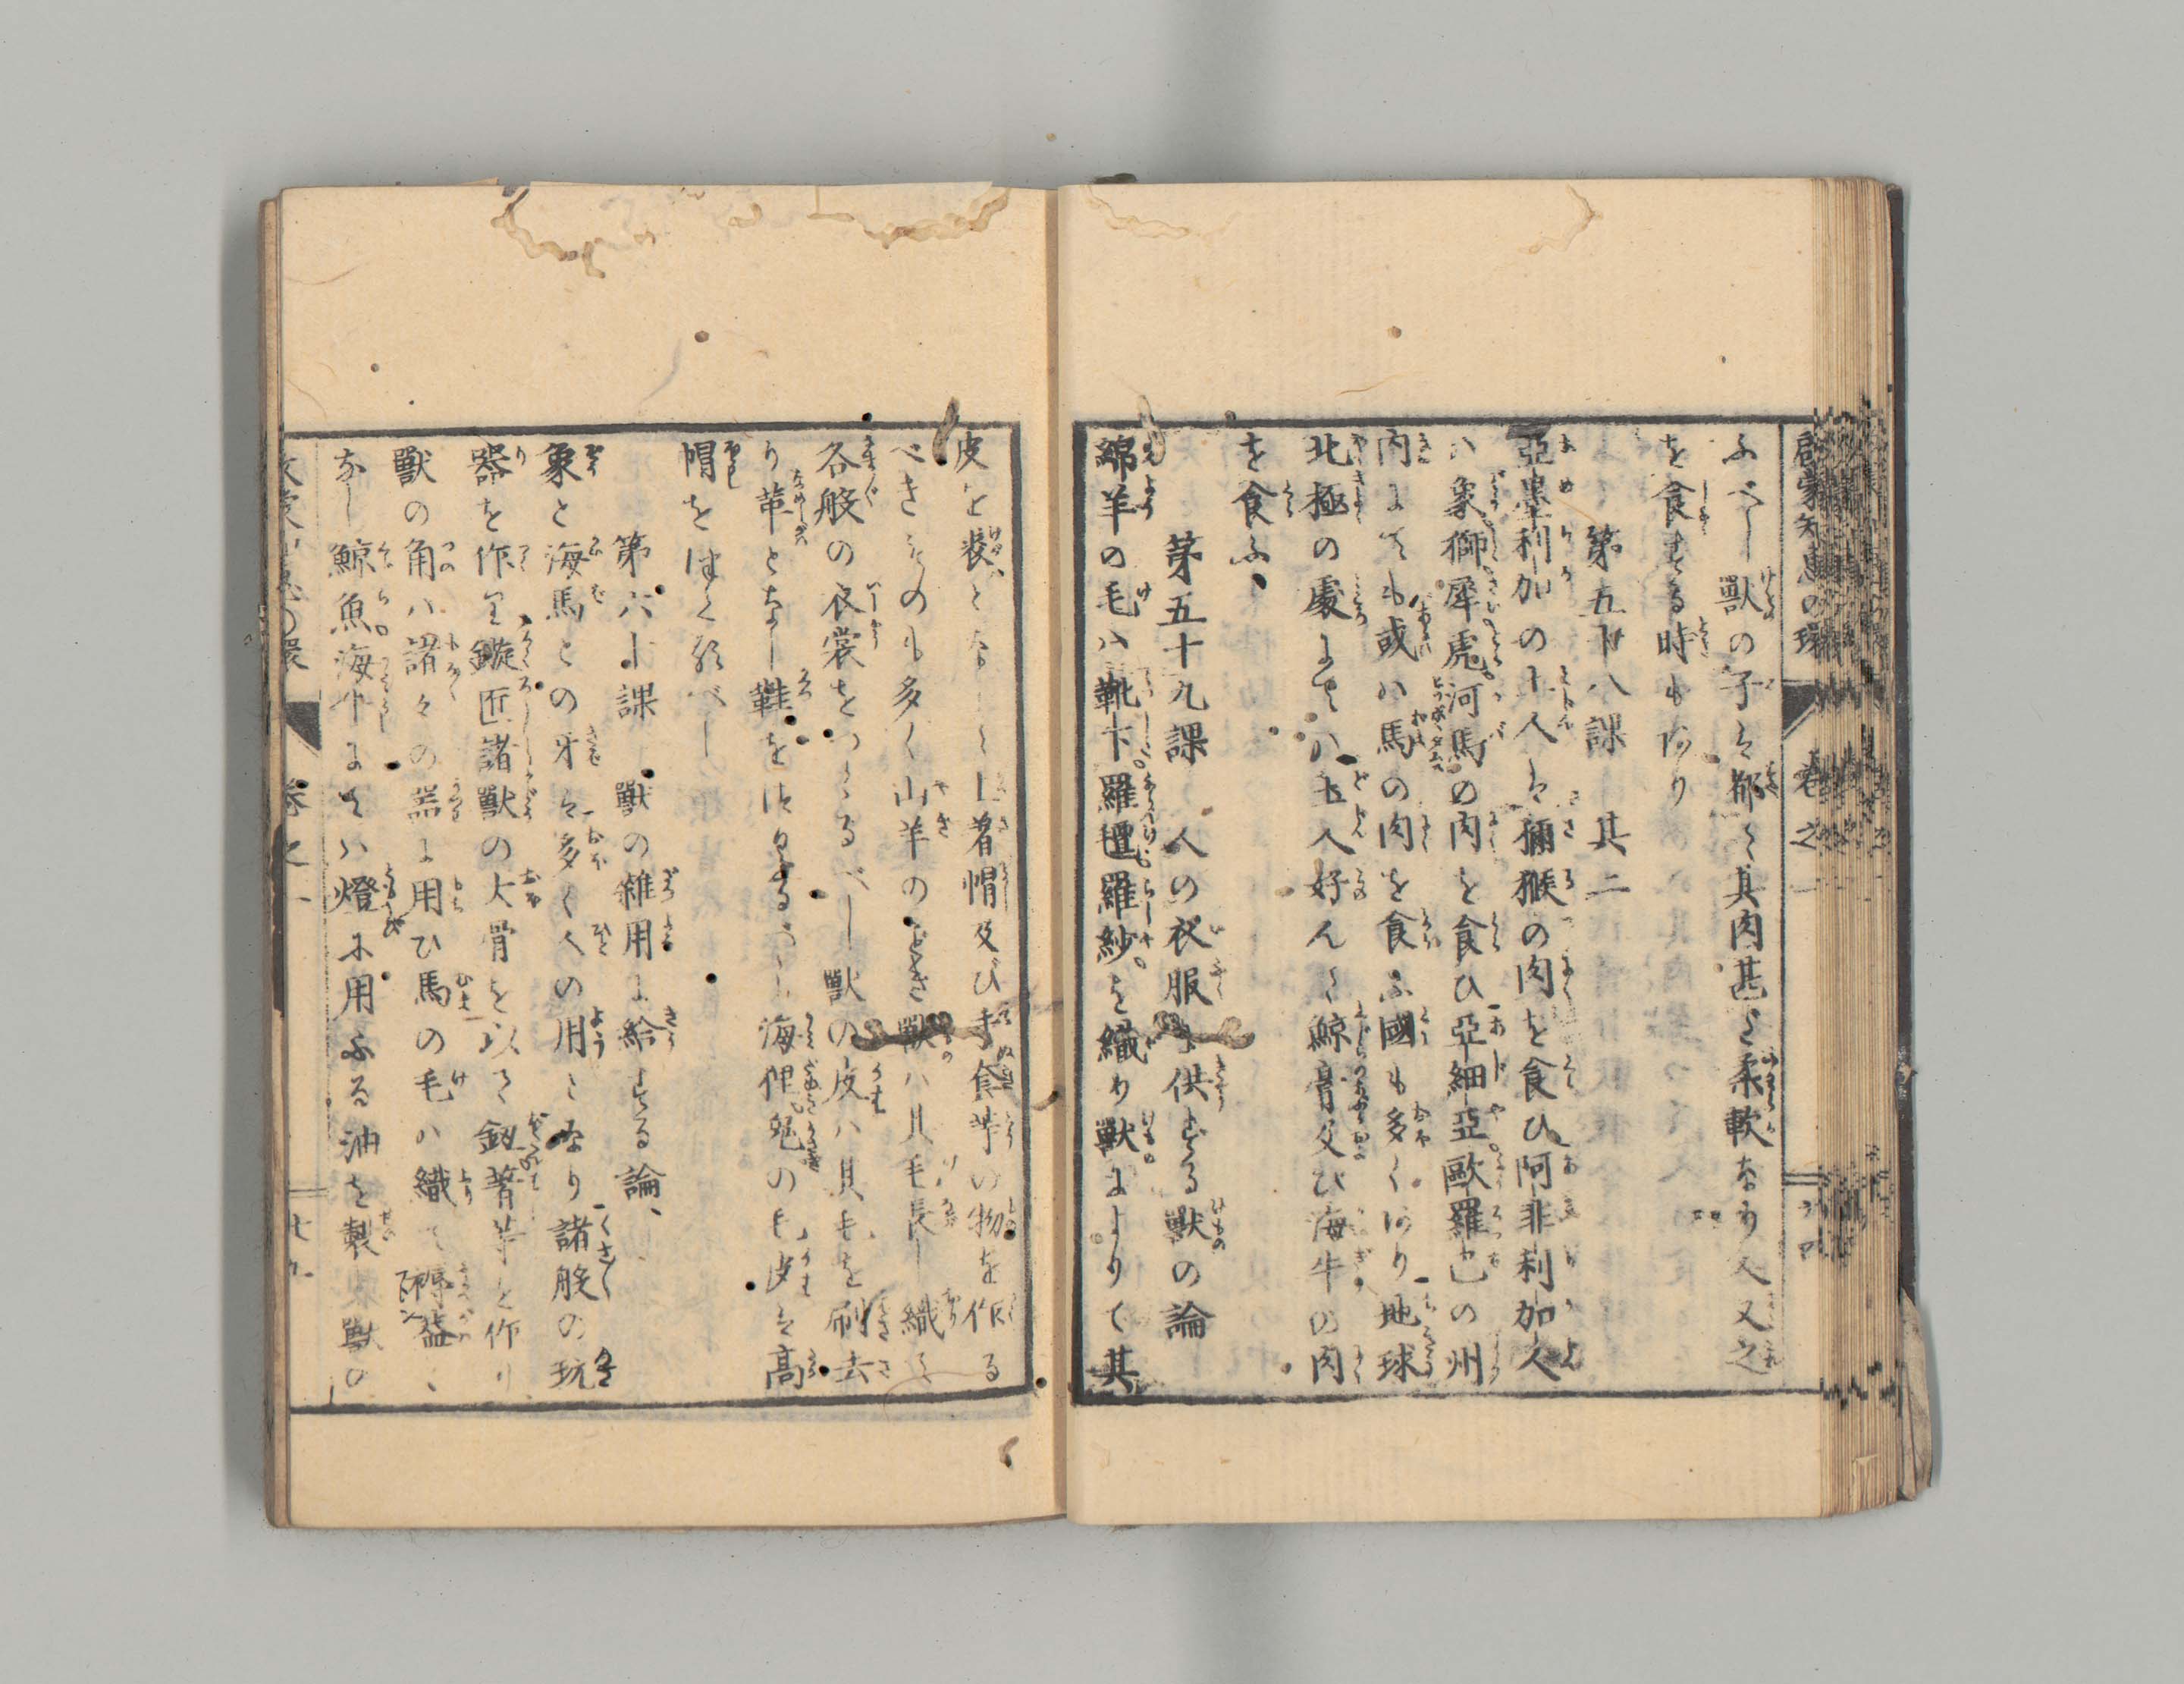 啓蒙知恵の環 巻之一
ふべし獣の子は都て其肉甚だ柔軟なり人又之
を食する時もあり
第五十八課 其二
亞墨利加の土人は獼猴の肉を食ひ阿非利加人
ハ象獅犀虎河馬の肉を食ひ亞細亞歐羅巴の州
内にても或ハ馬の肉を食ふ國も多くあり地球
北極の處にてハ土人好んで鯨膏及び海牛の肉
を食ふ、
第五十九課 人の衣服に供する獣の論
綿羊の毛ハ靴下羅氊羅紗を織り獣によりて其
皮を裘となして上着帽及び手套等の物を作る
べきものも多く山羊のごとき獣ハ其毛長し織て
各般の衣裳をつくるべし獣の皮ハ其毛を刷去
り革となし鞋をはりつくるべし海狸兎の毛皮は高
帽をはく能べし
第六十課 獣の雑用に給する論、
象と海馬との牙は多く人の用となり諸般の玩
器を作り鏇匠諸獣の大骨を以て釵箸等を作り
獣の角ハ諸々の器に用ひ馬の毛ハ織て褥益、
なし鯨魚海牛にてハ燈に用ふる油を製し獣の
巻之一